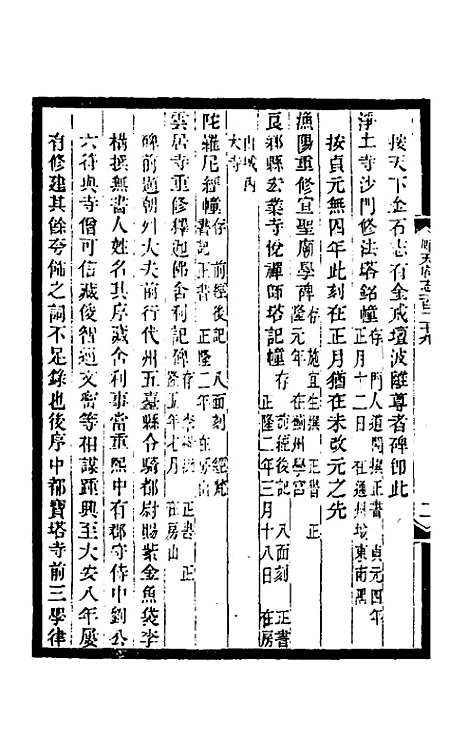 按天下金石志有金戒壇波離尊者碑卽此
淨土寺沙門修法塔銘幢存 門人道聞撰正書 貞元四年正月十二日 在通州城東南隅
按貞元無四年此刻在正月猶在未改元之先
漁陽重修宣聖廟學碑存 施宜生撰 正書 正隆元年 在薊州學宮
良鄉縣弘業寺悅禪師塔記幢存 前經後記 八面刻 正書 正隆二年三月十八日 在房山城內大寺
陀羅尼經幢存 前經後記 八面刻 經梵書記正書 正隆二年 在房山
雲居寺重修釋迦佛舍利記碑存 李構撰 正書 正隆五年七月 在房山
碑前題朝列大夫前行代州五臺縣令騎都尉賜紫金魚袋李
構撰無書人姓名其序誠舍利事當重熙中有郡守侍中劉公
六符與寺僧可信藏俊智通文密等相謀踵興至大安八年屢
有修建其餘夸佈之詞不足錄也後序中都寶塔寺前三學律
順天府志一百二十九
二